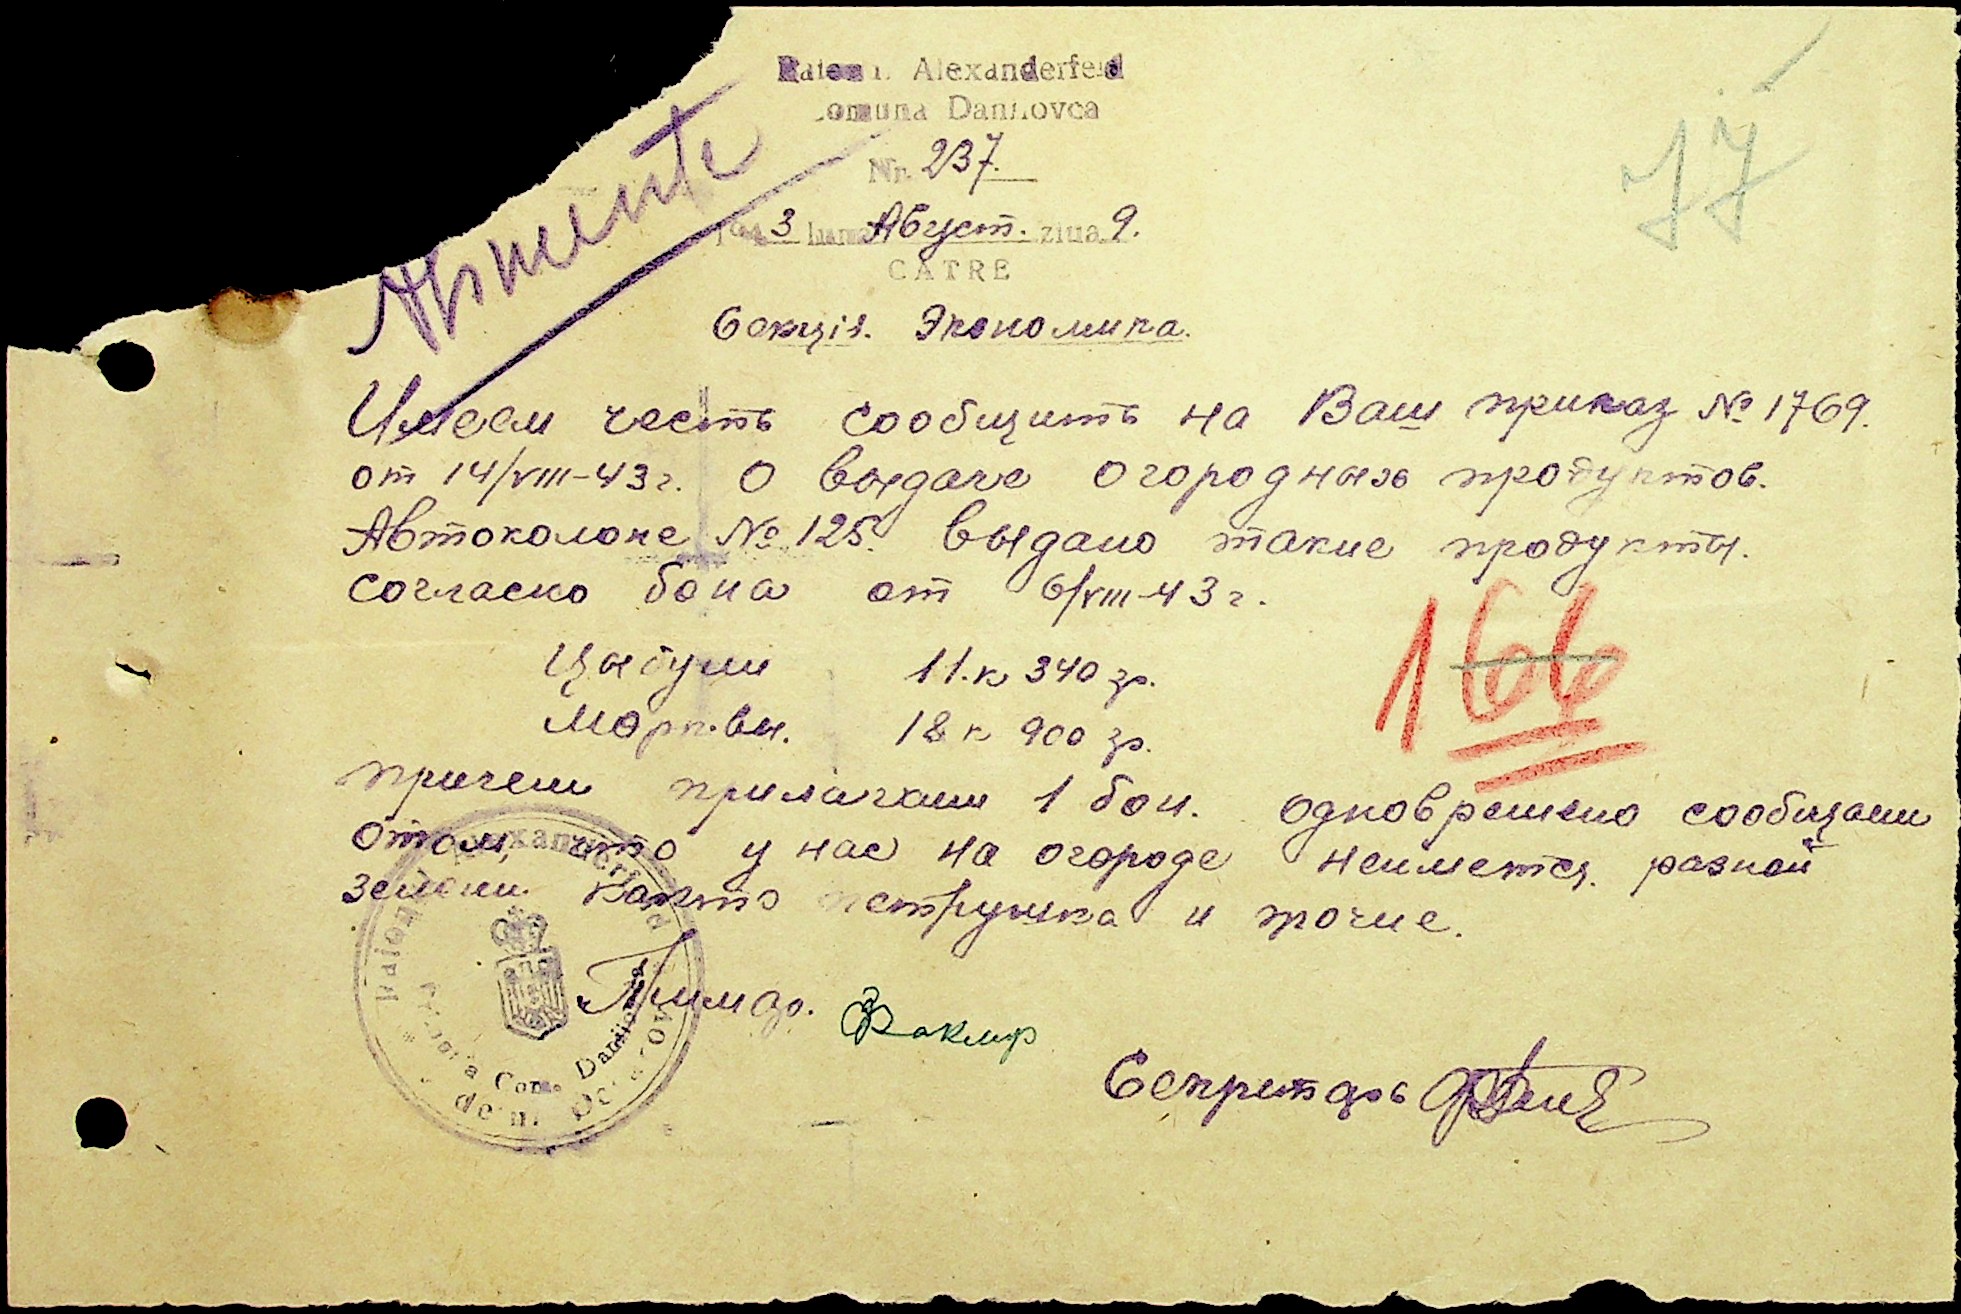 Raionul Alexanderfeld
Comuna Danilovca
Nr. 237.
1943 luna Август. ziua 9.
CATRE
Секція. Экономика.
Alimente
77
Имеем честь сообщить на Ваш приказ № 1769.
от 14/VIII-43г. О выдаче огородных продуктов.
Автоколоне № 125. выдано такие продукты.
согласно бона от 6/VIII-43г.
Цыбули 11.к 340 гр.
Морквы. 18к 900 гр.
166
причем прилагаем 1 бон. одновремено сообщаем
отом, что у нас на огороде неиметця. разной
зелени. както петрушка и прочие.
Примар.
Секретарь